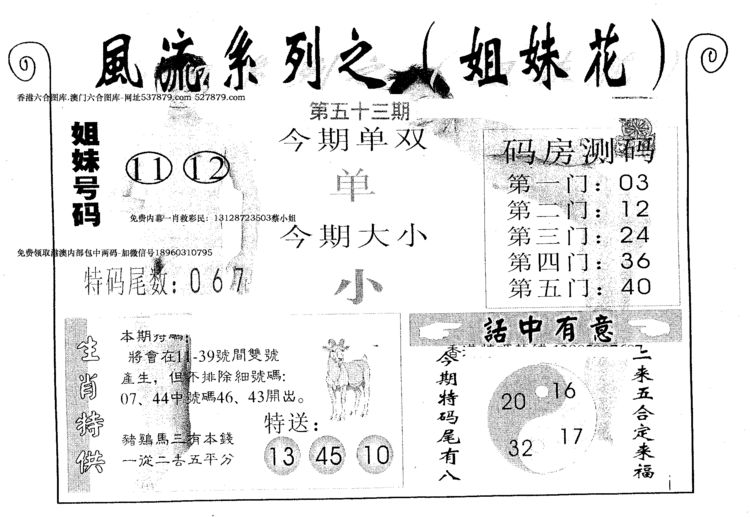 風流系列之（姐妹花）
香港六合图库.澳门六合图库-网址537879.com 527879.com
第五十三期
姐妹号码
11 12
免费内幕一肖救彩民：13128723503蔡小姐
免费领取港澳内部包中两码-加微信号18960310795
特码尾数：067
今期单双
单
今期大小
小
码房测码
第一门：03
第二门：12
第三门：24
第四门：36
第五门：40
生肖特供
本期特碼：
將會在11-39號間雙號
產生，但不排除細號碼:
07、44中號碼46、43開出。
豬鷄馬三有本錢
一從二去五平分
特送：
13 45 10
話中有意
今期特码尾有八
20 16
32 17
二来五合定来福